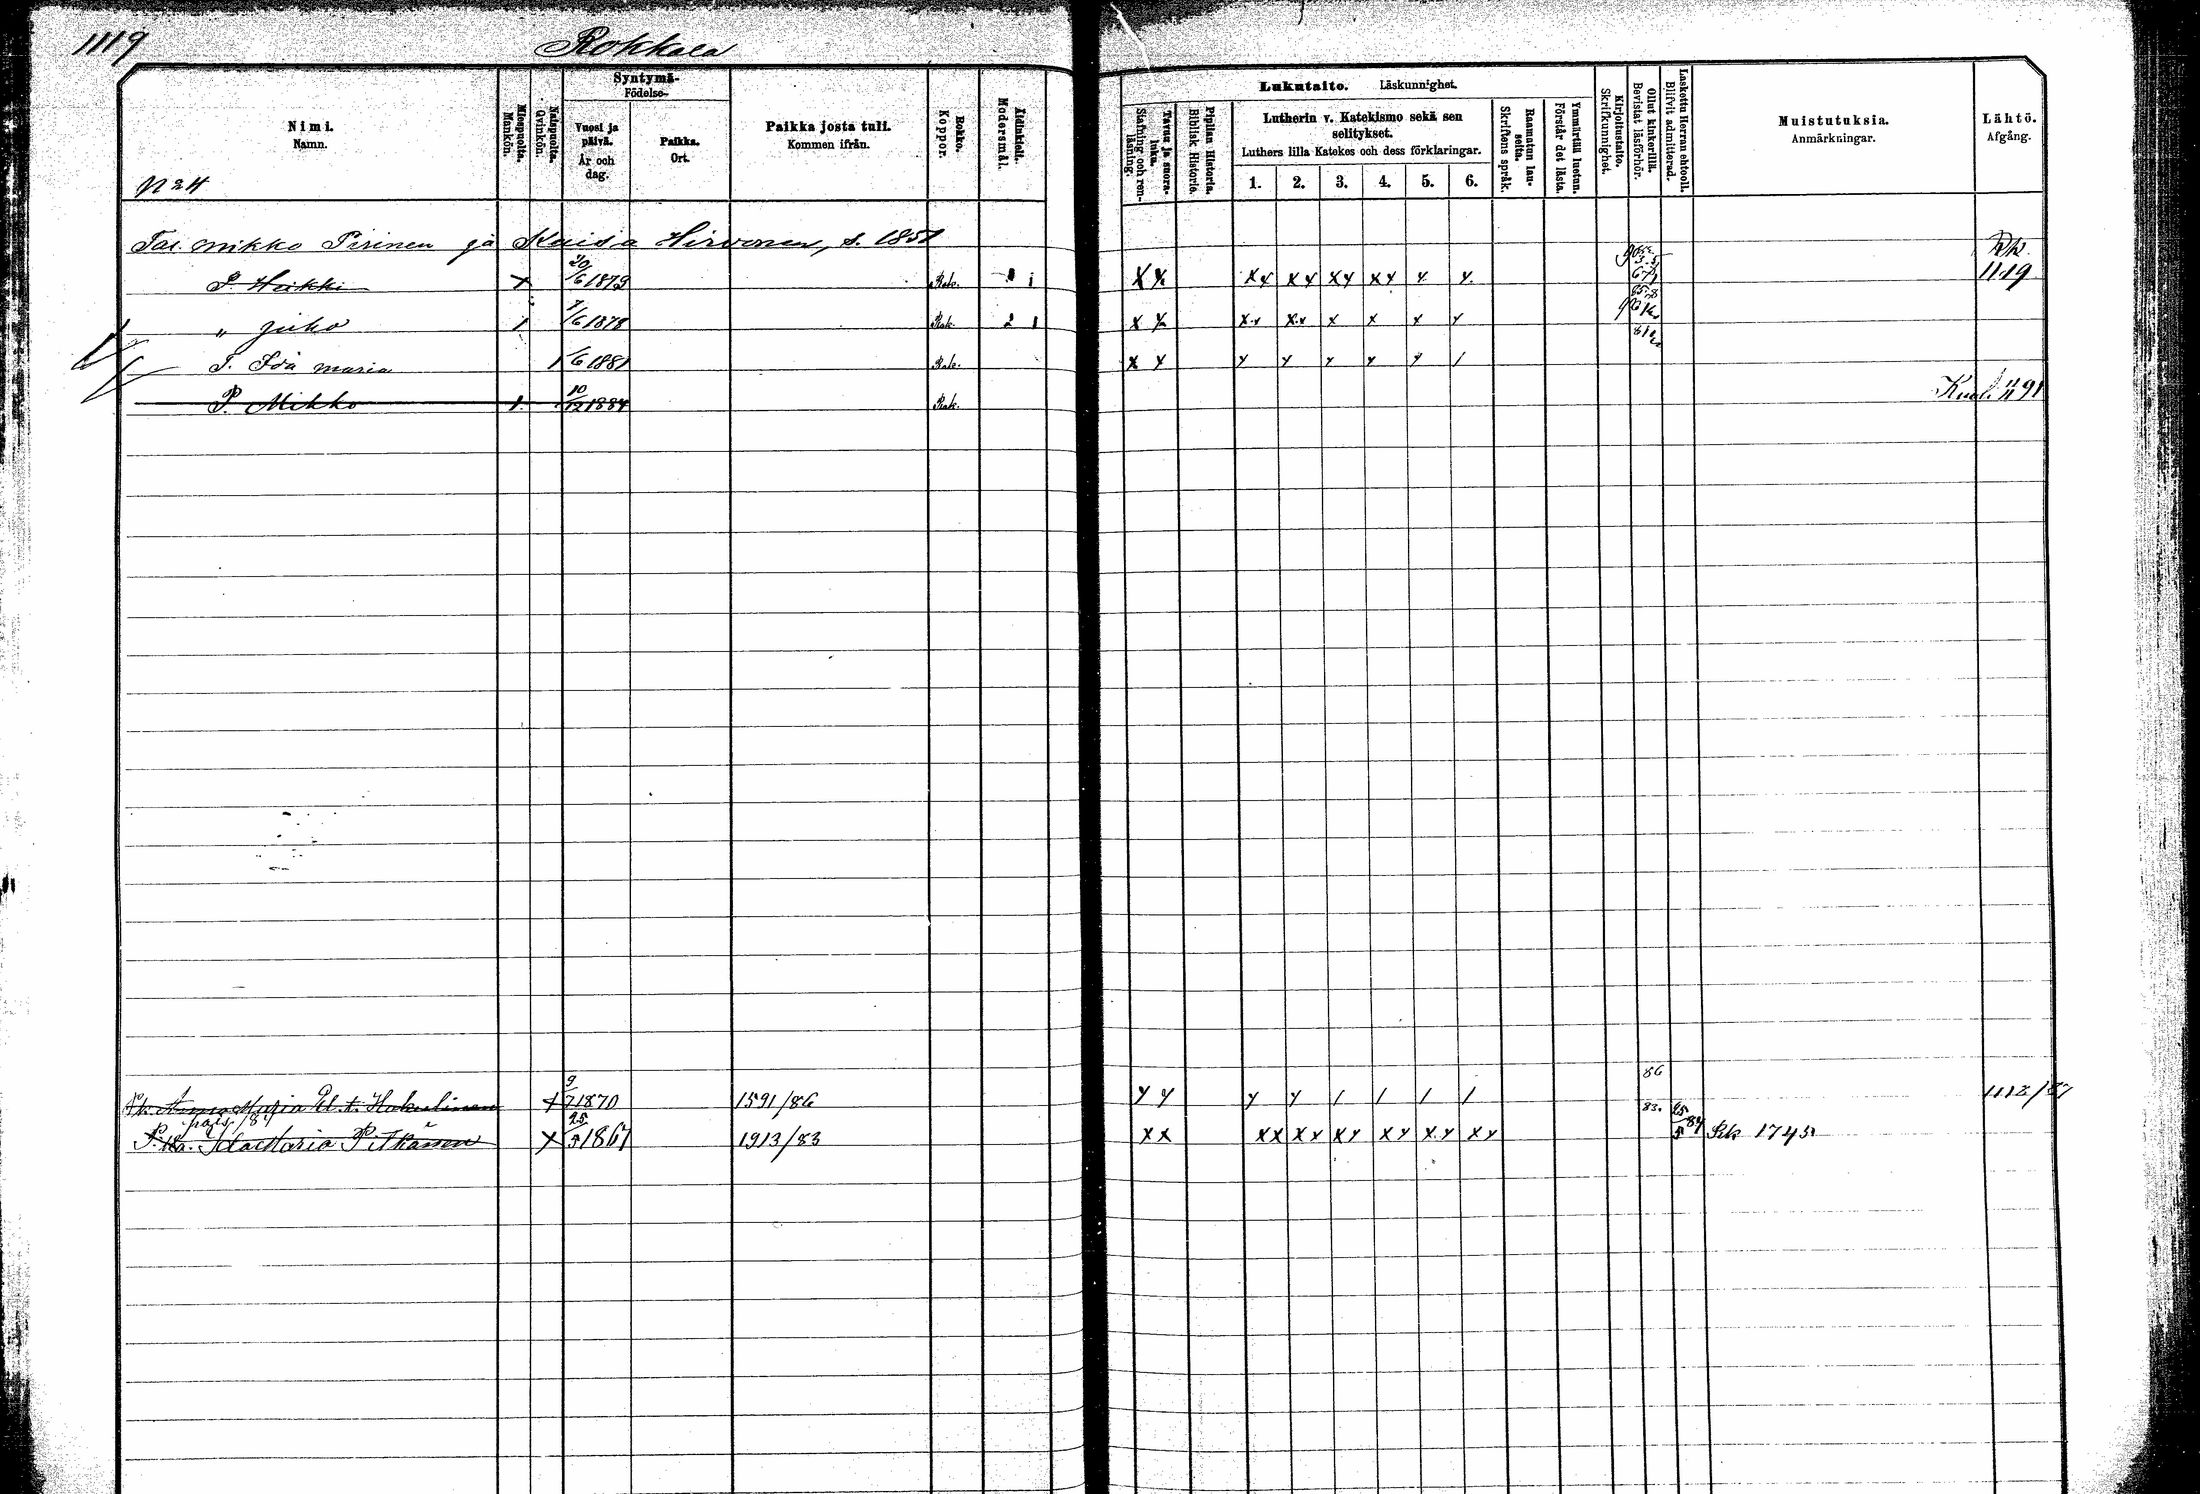 1119
Rokkala
Nimi.
Namn.
N 24
Miespuolta.
Mankön.
Naispuolta.
Qvinkön.
Syntymä-
Födelse-
Vuosi ja
päivä.
År och
dag.
Paikka.
Ort.
Paikka josta tuli.
Kommen ifrån.
Rokko.
Koppor.
Äidinkieli.
Modersmål.
Lukutaito. Läskunnighet.
Tavuu ja suora-
luku.
Stafning och ren-
läsning.
Piplian Historia.
Biblisk Historie.
Lutherin v. Katekismo sekä sen
selitykset.
Luthers lilla Katekes och dess förklaringar.
1. 2. 3. 4. 5. 6.
Raamatun lau-
seita.
Skriftens språk.
Ymmärtää luetun.
Förstår det lästa.
Kirjoitustaito.
Skrifkunnighet.
Ollut kinkerillä.
Bevistat läsförhör.
Laskettu Herran ehtooll.
Blifvit admitterad.
Muistutuksia.
Anmärkningar.
Lähtö.
Afgång.
Tal. Mikko Pirinen ja Kaisa Hirvonen, s. 1851
P. Heikki x 20/6 1873 Rok. x x x x x x x x x x x x 1119
" Juho 1 7/6 1878 Rok. 2 1 x x x x x x x x x x
P. Ida Maria 1 1/6 1881 Rok. x x x x x x x 1
P. Mikko 1. 10/12 1884 Rok. Kuol. 91
Anna Maria El. t. Hakulinen x 9/7 1870 1591/86 x x x x 1 1 1 1 86 1112/87
P. ka. Ida Maria Pitkänen x 25/5 1867 1913/83 x x x x x x x x x x x x x x 83. 25/5 84 Rk 1745